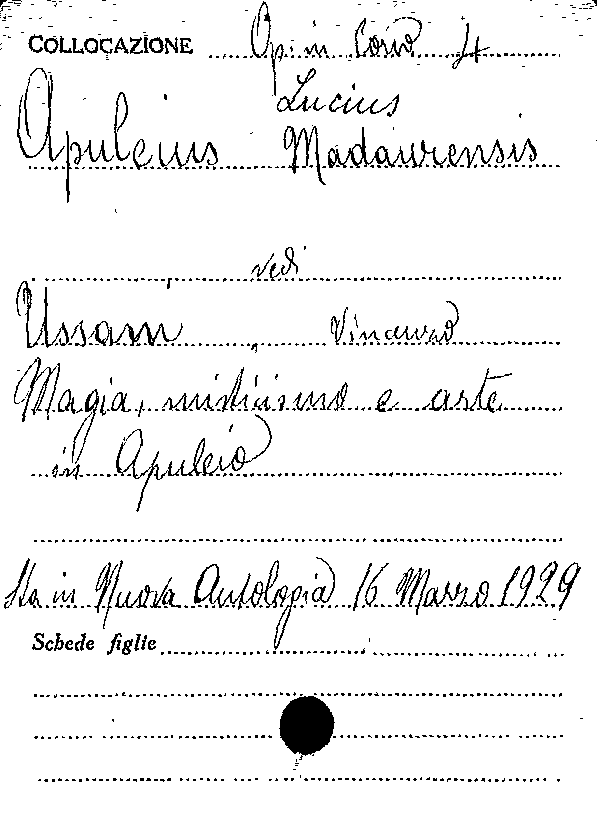 COLLOCAZIONE Op. in Corso 4
Lucius
Apuleius Madaurensis
vedi
Ussani Vincenzo
Magia, misticismo e arte
in Apuleio
Sta in Nuova Antologia 16 Marzo 1929
Schede figlie